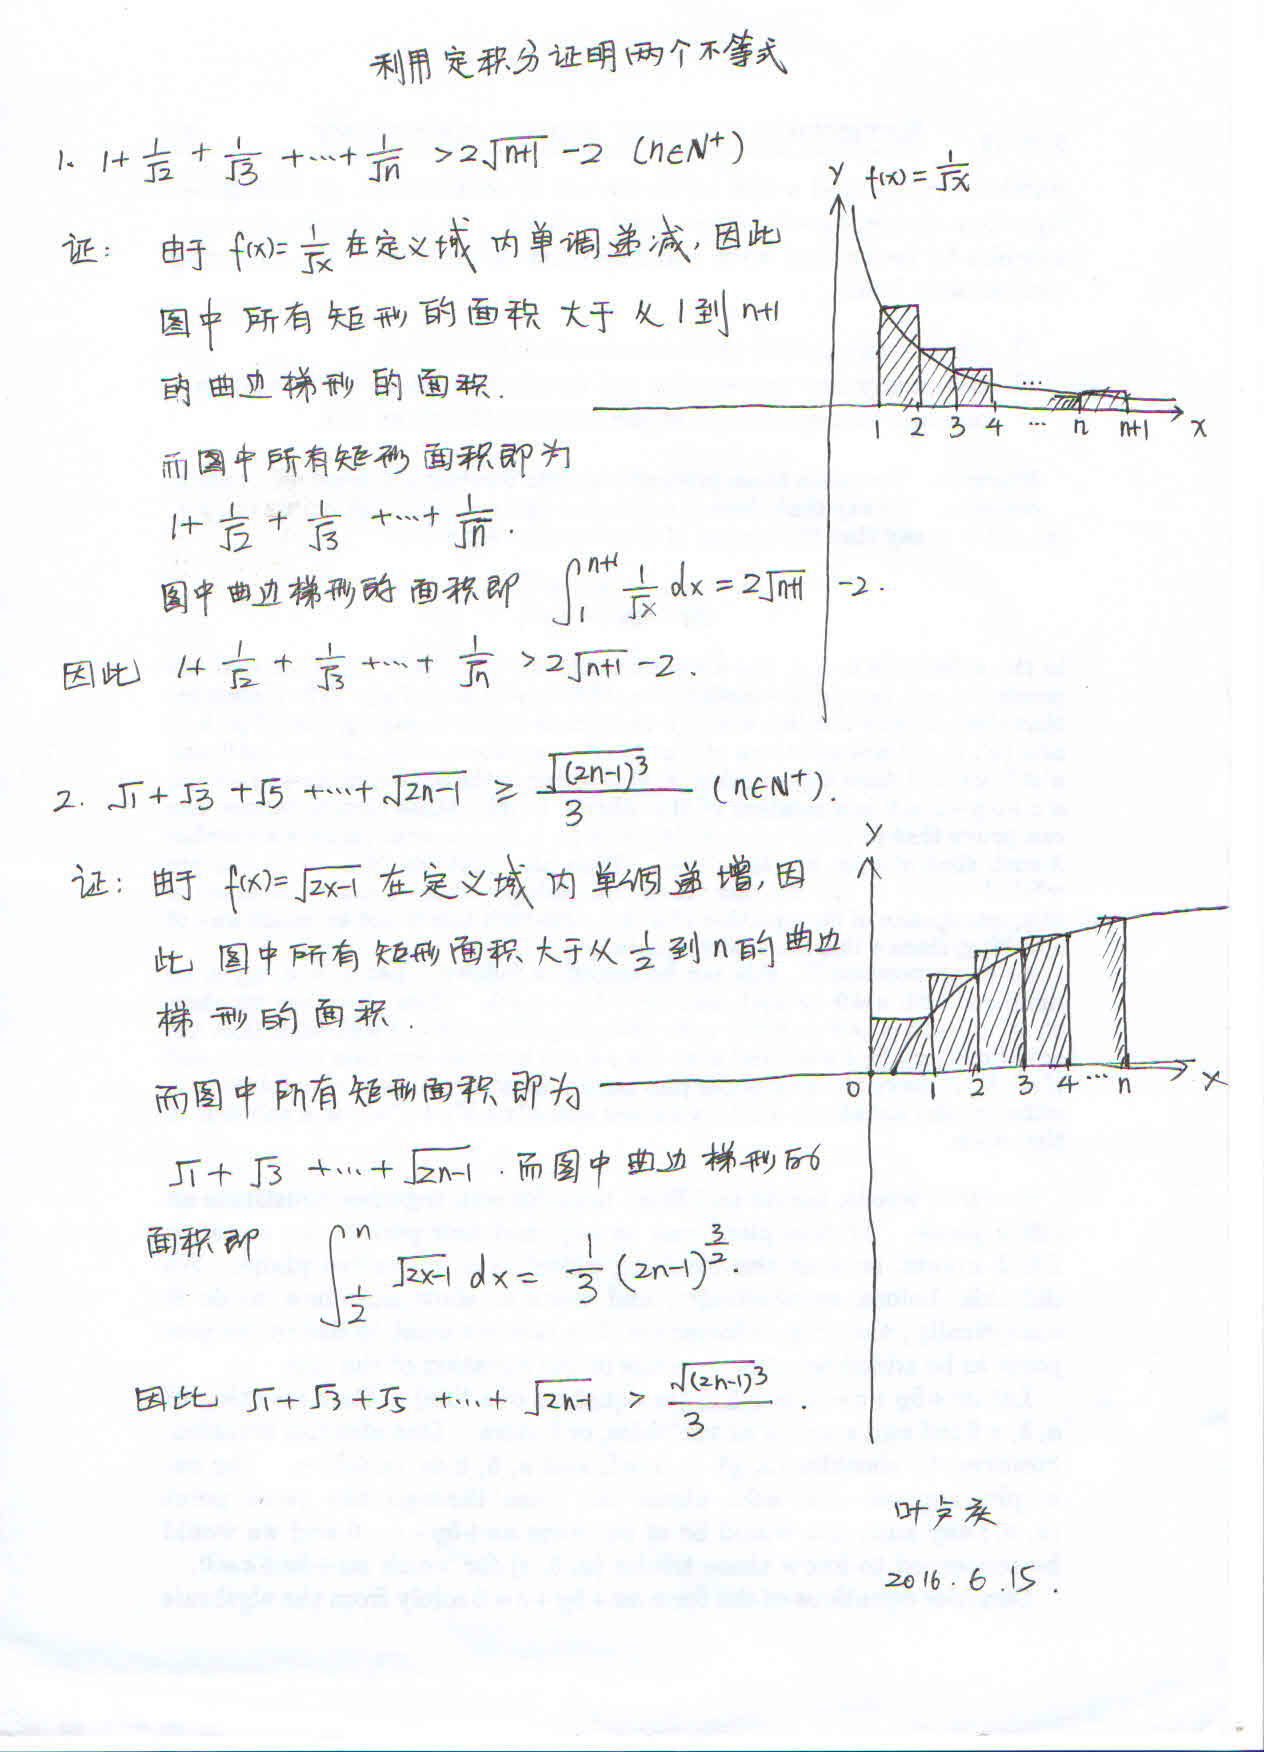 利用定积分证明两个不等式
1. 1+1/√2+1/√3+…+1/√n >2√(n+1) -2 (n∈N⁺)
y f(x)=1/√x
证: 由于 f(x)=1/√x 在定义域内单调递减,因此
图中所有矩形的面积大于从1到n+1
的曲边梯形的面积.
1 2 3 4 … n n+1 x
…
而图中所有矩形面积即为
1+1/√2+1/√3+…+1/√n.
图中曲边梯形的面积即 ∫₁ⁿ⁺¹ 1/√x dx=2√(n+1) -2.
因此 1+1/√2+1/√3+…+1/√n >2√(n+1)-2.
2. √1+√3+√5+…+√(2n-1) ≥ √((2n-1)³)/3 (n∈N⁺).
y
证: 由于 f(x)=√(2x-1) 在定义域内单调递增,因
此图中所有矩形面积大于从1/2到n的曲边
梯形的面积.
而图中所有矩形面积即为
0 1 2 3 4 … n x
√1+√3+…+√(2n-1).而图中曲边梯形的
面积即 ∫_{1/2}^{n} √(2x-1) dx= 1/3 (2n-1)^{3/2}.
因此 √1+√3+√5+…+√(2n-) > √((2n-1)³)/3.
叶卢庆
2016.6.15.